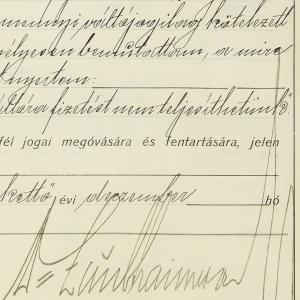 váltójogilag kötelezett
bemutattam, a mire
nyertem:
fizetést nem teljesíthetünk."
fél jogai megóvására és fentartására, jelen
kettő évi december hó